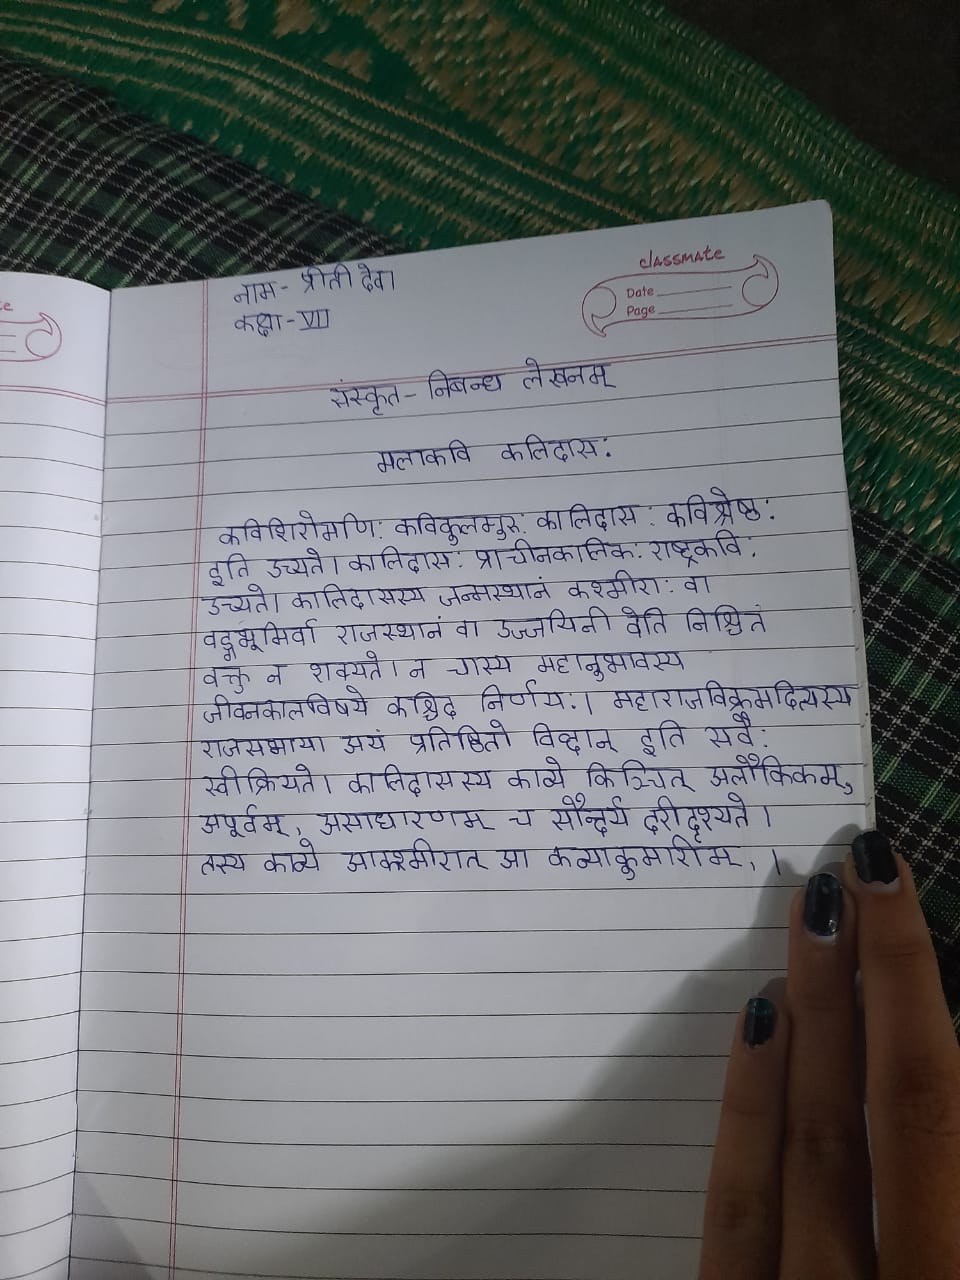 नाम- प्रीती देवा
कक्षा- VII
classmate
Date
Page
संस्कृत- निबन्ध लेखनम्
मलाकवि कलिदास:
कविशिरोमणि: कविकुलम्गुरु: कालिदास: कविश्रेष्ठ:
इति उच्यते। कालिदास: प्राचीनकालिक: राष्ट्रकवि:
उच्यते। कालिदासस्य जन्मस्थानं कश्मीरा: वा
वङ्गभूमिर्वा राजस्थानं वा उज्जयिनी वेति निश्चितं
वक्तु न शक्यते। न चास्य महानुभावस्य
जीवनकालविषये कश्चिद निर्णय:। महाराजविक्रमदित्यस्य
राजसभाया अयं प्रतिष्ठितो विद्वान् इति सर्वै:
स्वीक्रियते। कालिदासस्य काव्ये किञ्चित् अलौकिकम्,
अपूर्वम्, असाधारणम् च सौन्दर्य दरीदृश्यते।
तस्य काव्ये आकश्मीरात् आ कन्याकुमारीम्, ।